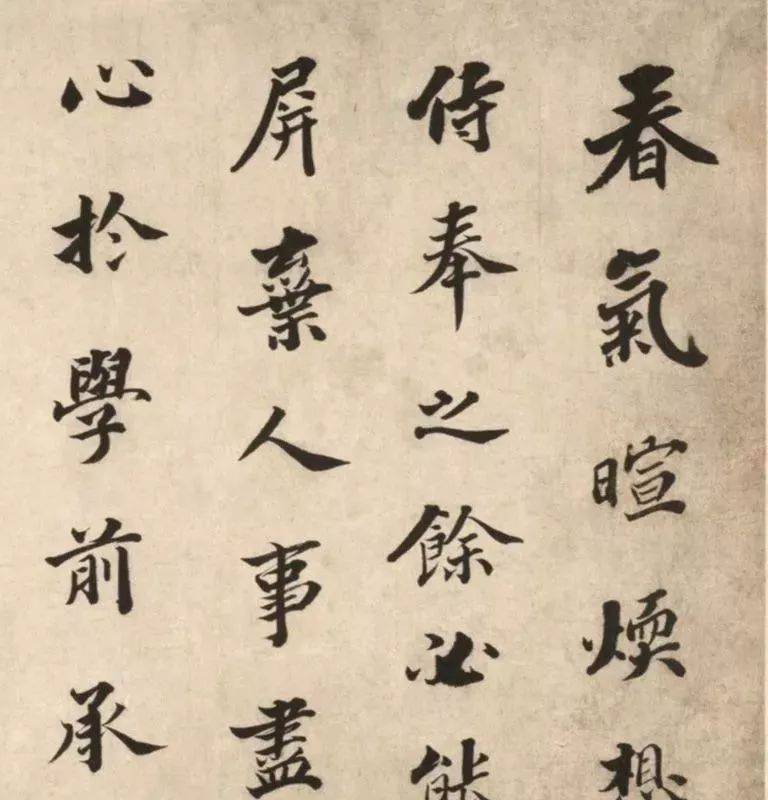 春氣暄煗想
侍奉之餘必能
屏棄人事盡
心於學前承